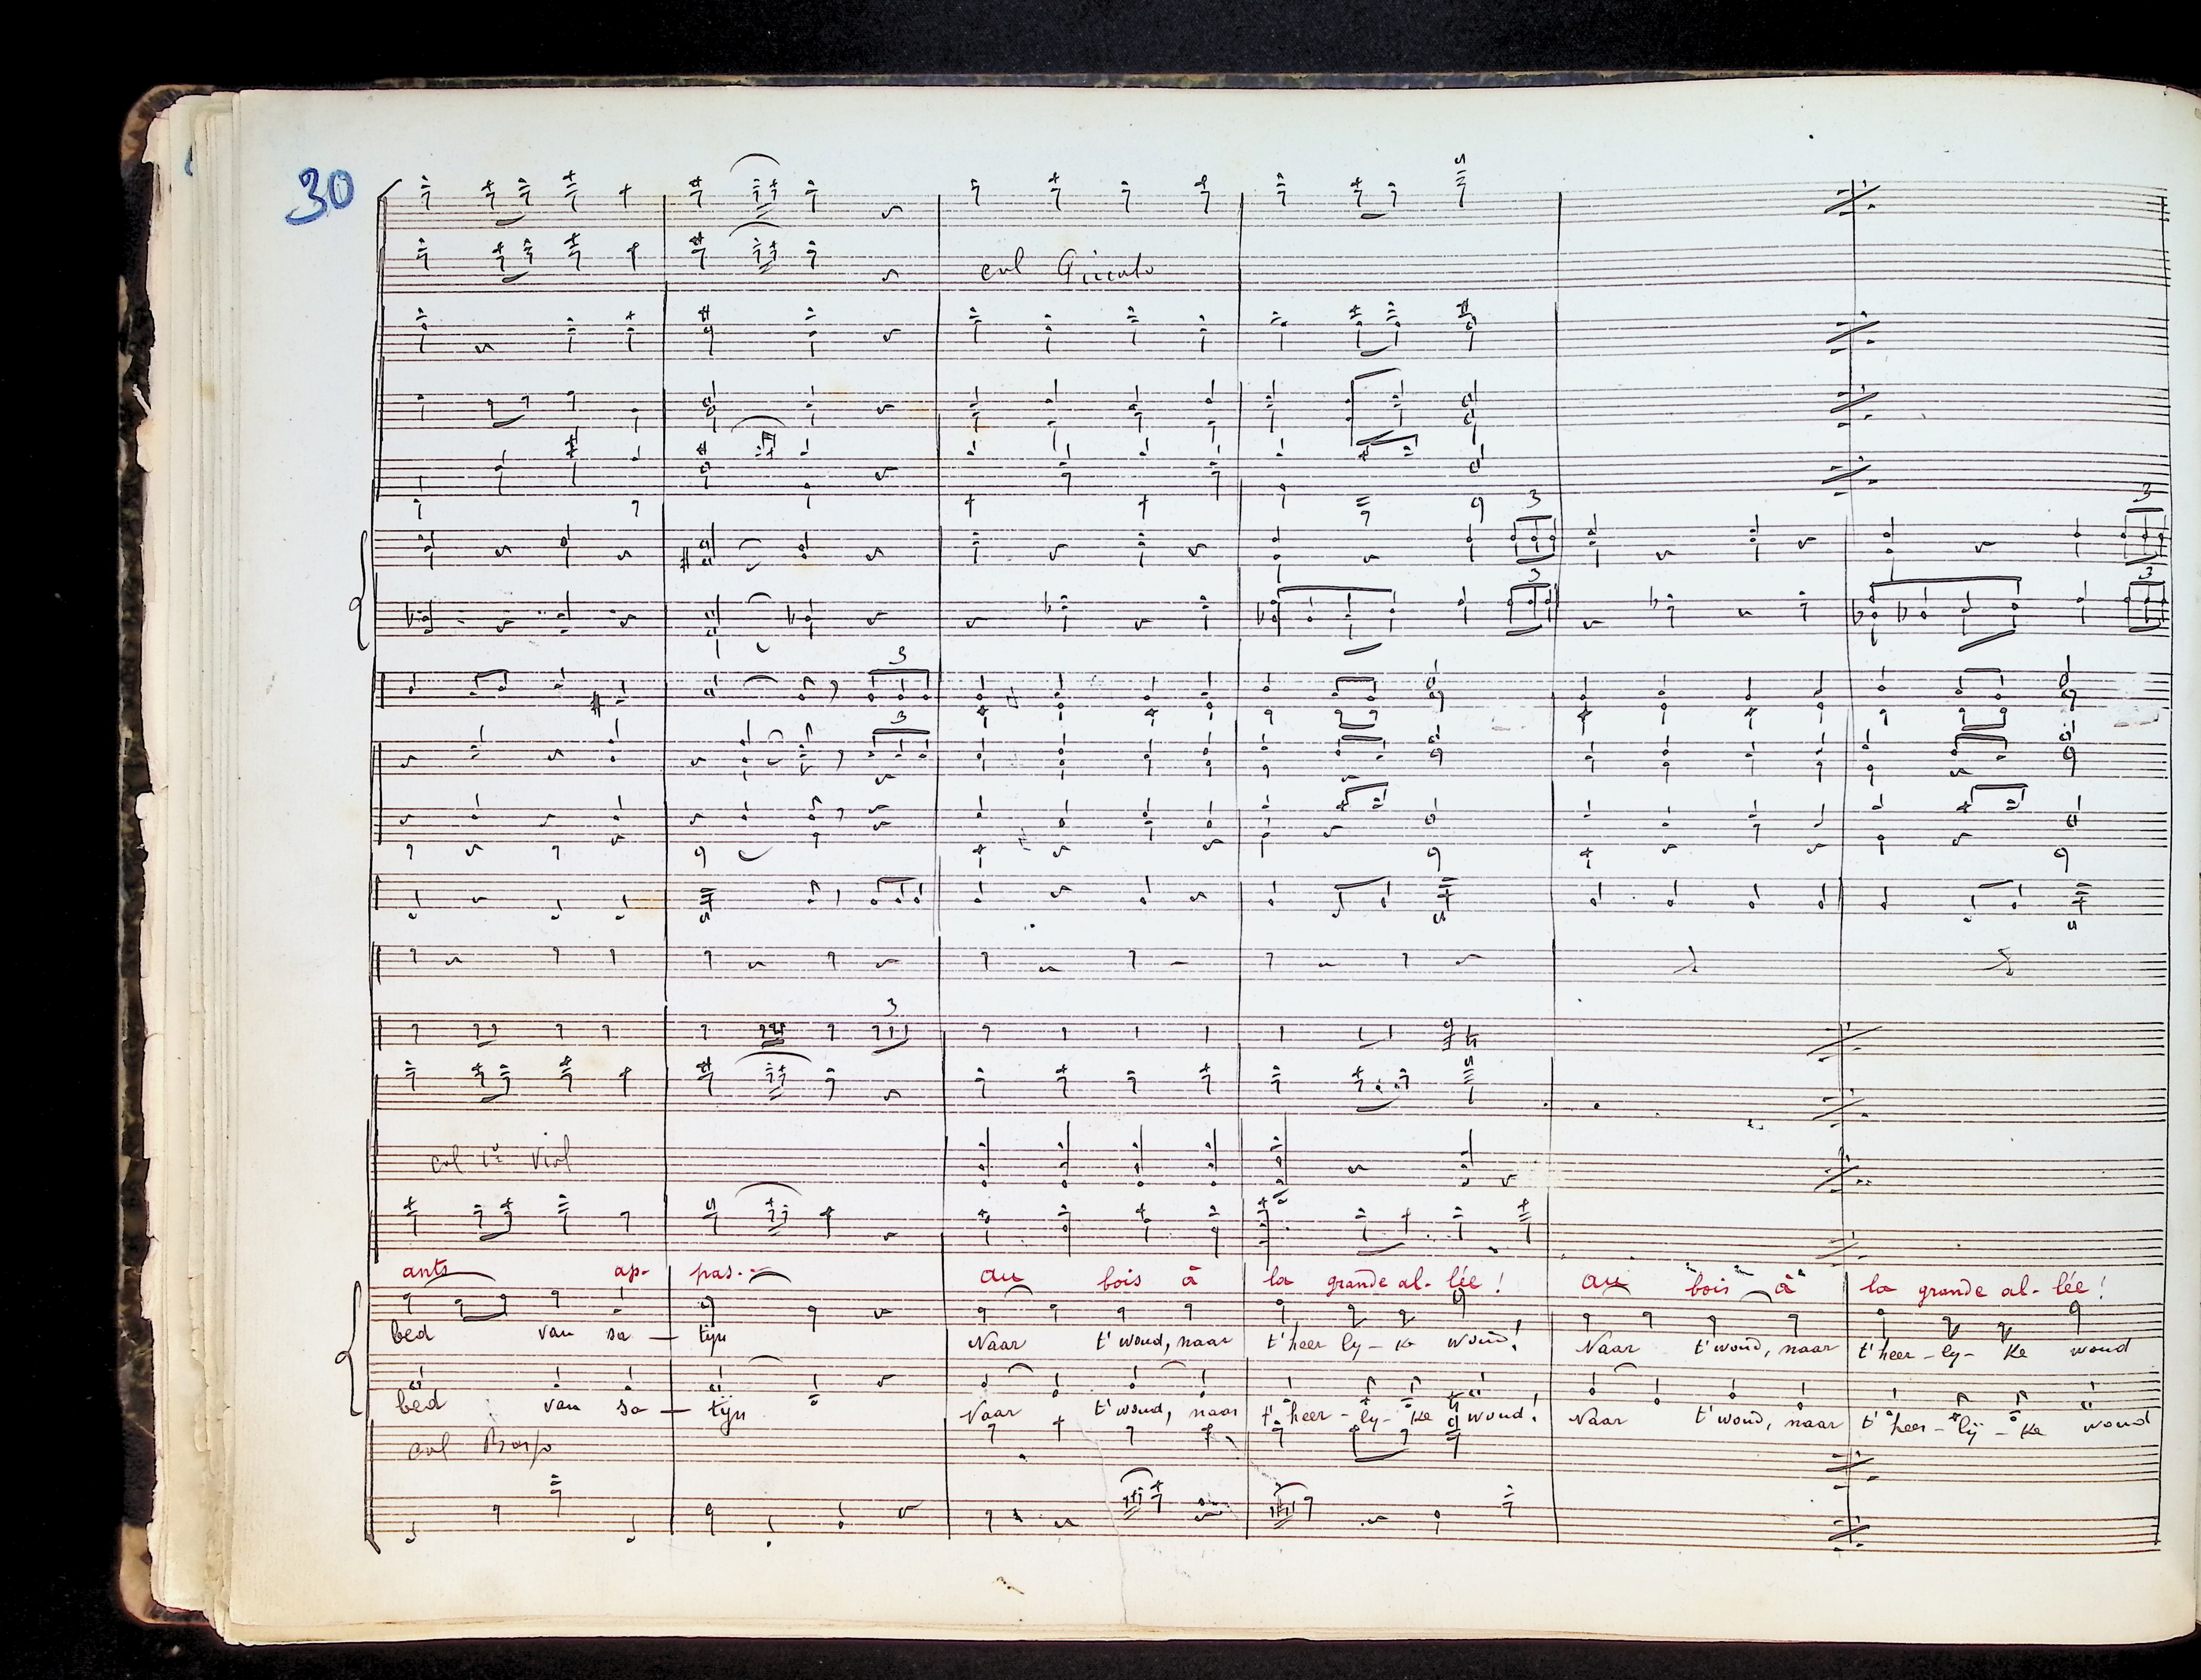 30
col Piccolo
3
3
3
3
3
3
3
col 1º Viol
ants ap- pas. au bois à la grande al- lée! au bois à la grande al- lée!
bed van sa — tyn Naar t'woud, naar t'heer ly - ke woud! Naar t'woud, naar t'heer - ly - ke woud
bed van sa — tyn Naar t'woud, naar t'heer - ly - ke woud! Naar t'woud, naar t'heer - lÿ - ke woud
col Basso